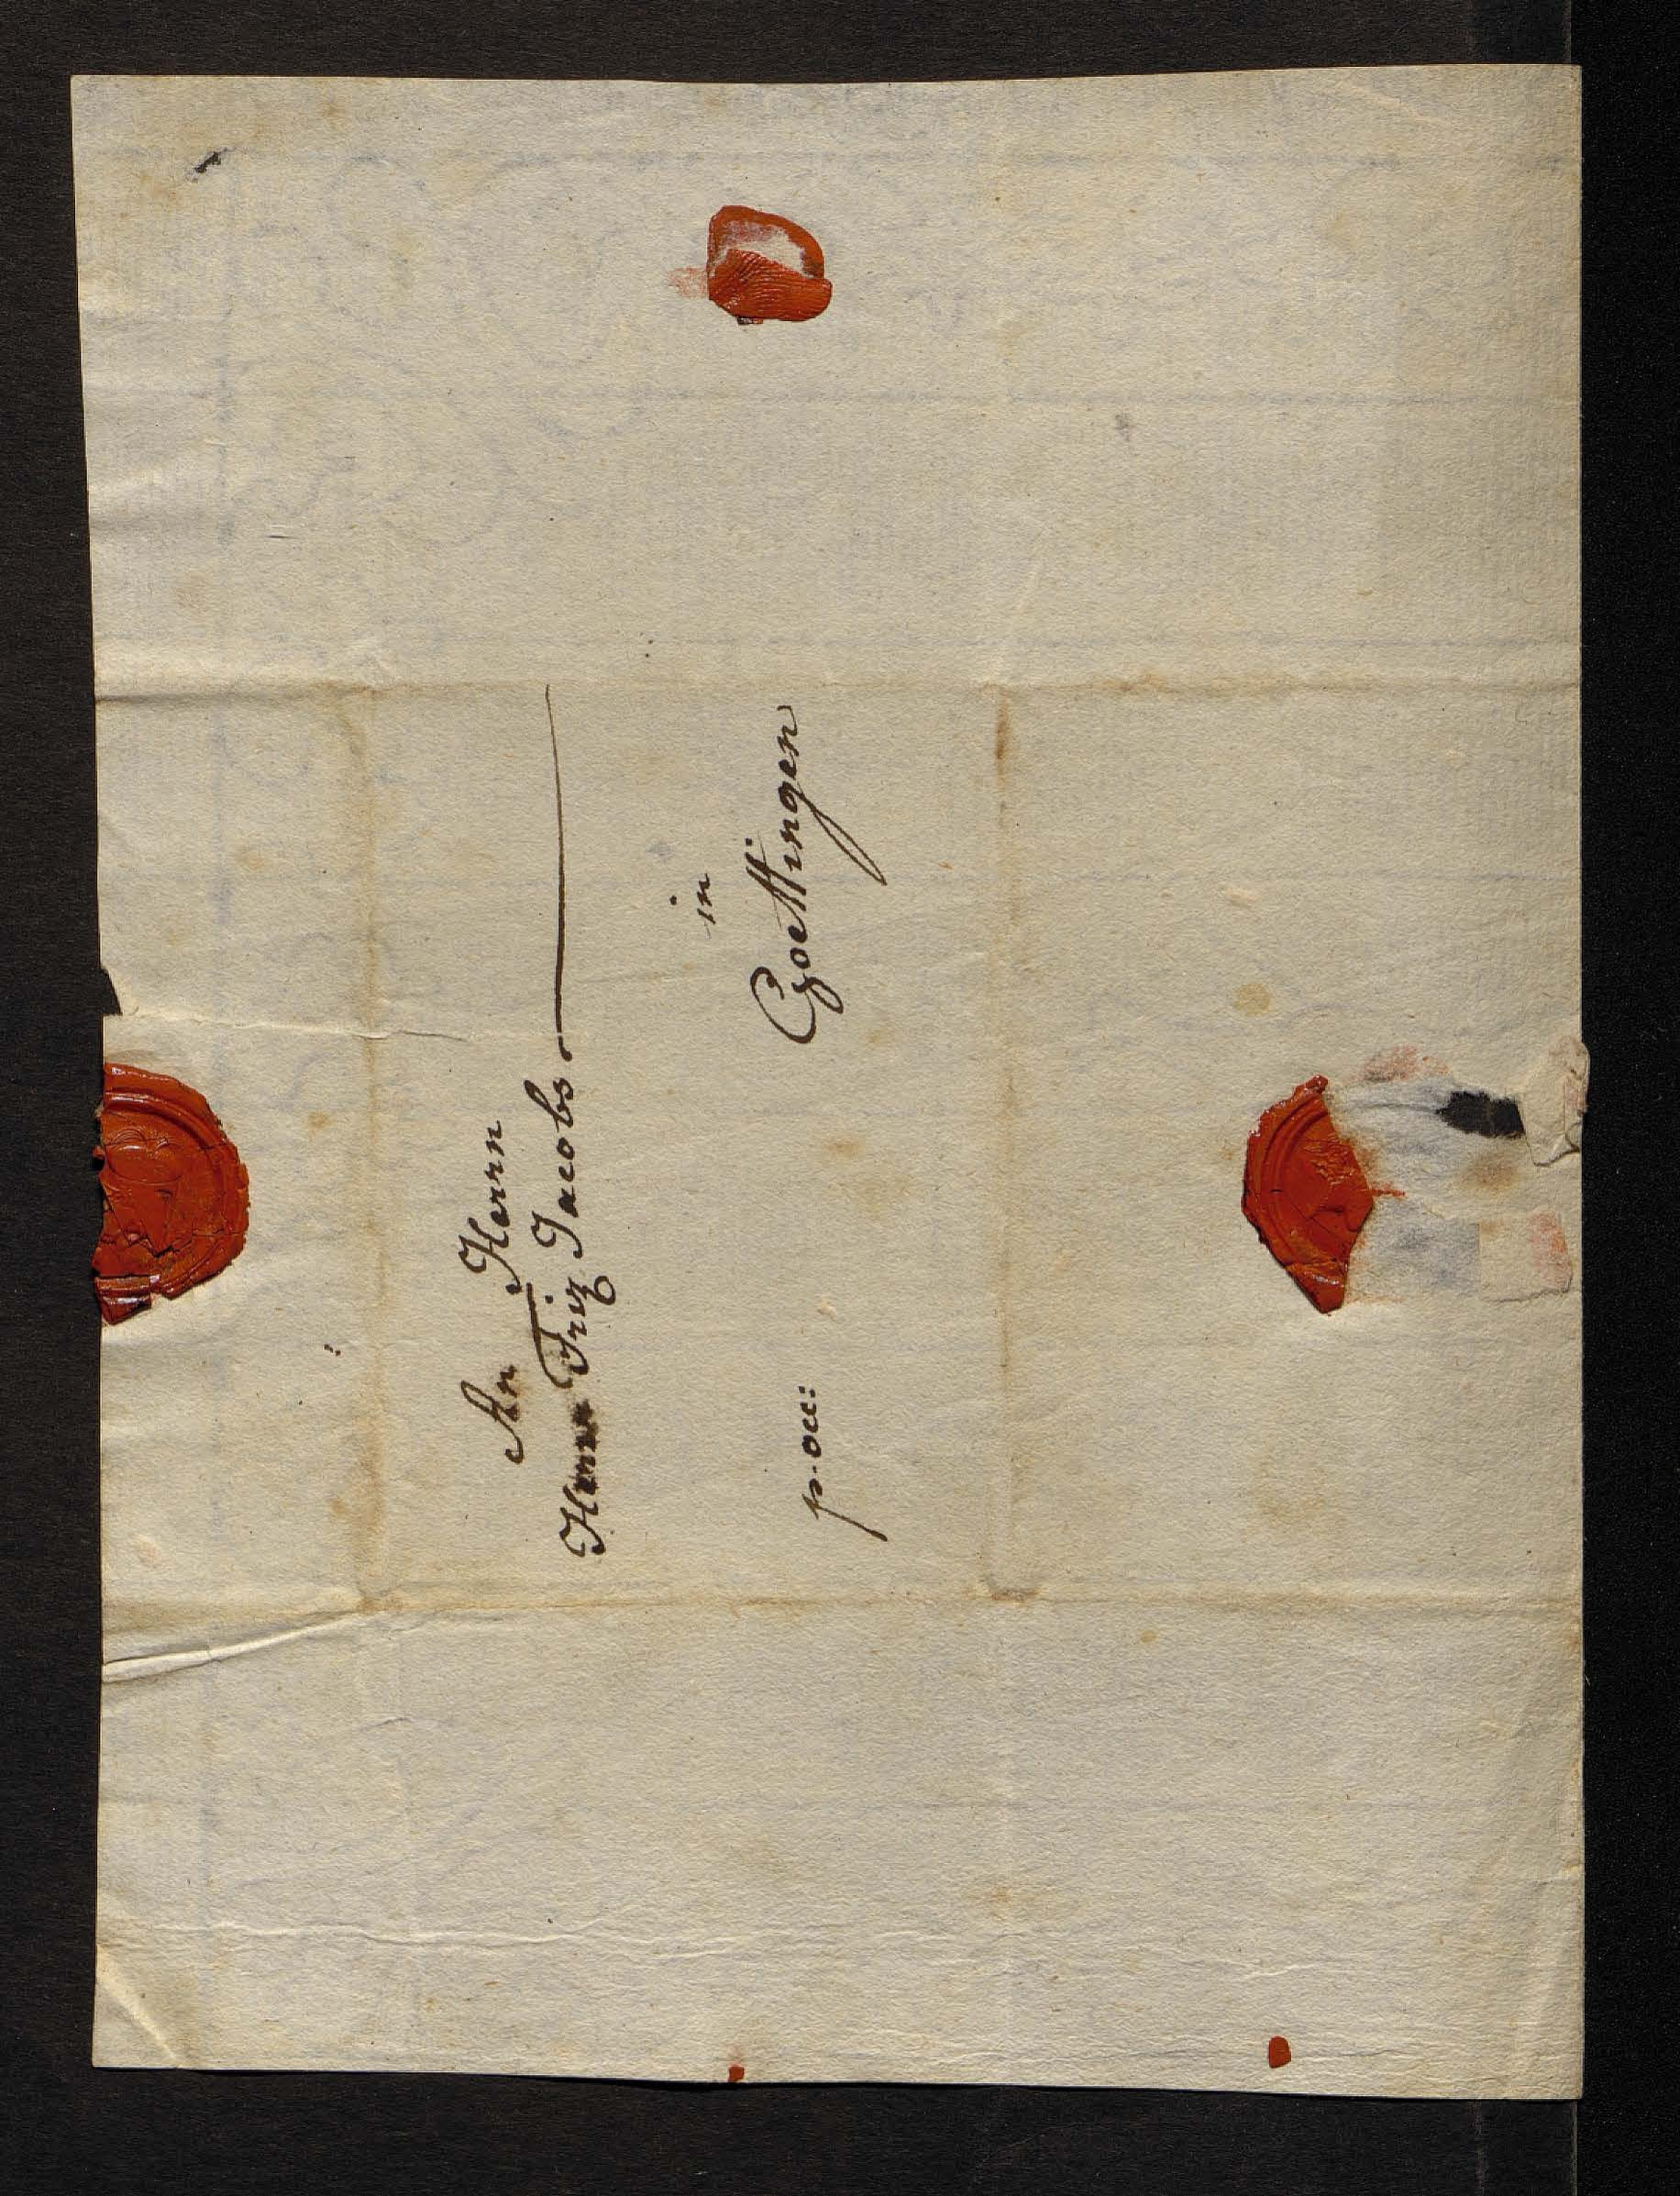 An Herrn
Herrn Friz Jacobs
in
Goettingen
p. occ: